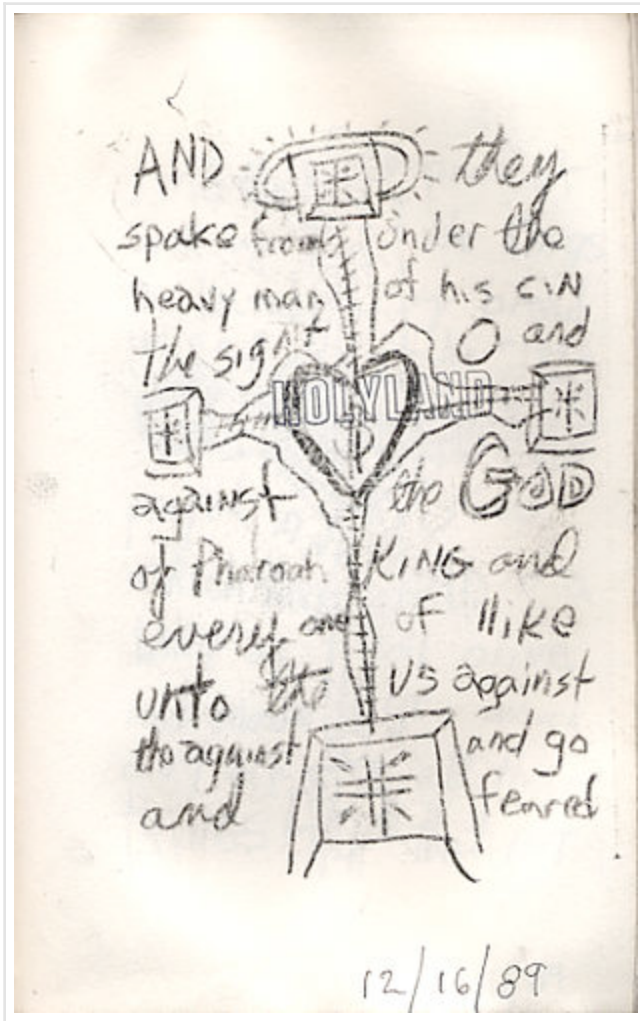 AND they
spake from under the
heavy man of his siN
the sight O and
HOLYLAND
against the GOD
of Pharoah KING and
every one of like
unto the us against
tho against and go
and feared
12/16/89